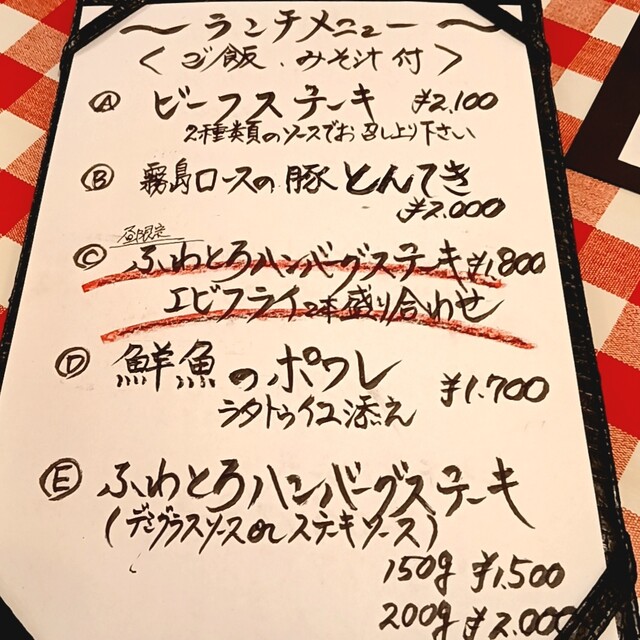 〜ランチメニュー〜
〈ご飯、みそ汁付〉
Ⓐ ビーフステーキ ¥2,100
2種類のソースでお召し上り下さい
Ⓑ 霧島ロースの豚とんてき
¥2,000
昼限定
Ⓒ ふわとろハンバーグステーキ ¥1,800
エビフライ2本盛り合わせ
Ⓓ 鮮魚のポワレ
¥1,700
ラタトゥイユ添え
Ⓔ ふわとろハンバーグステーキ
(デミグラスソース or ステーキソース)
150g ¥1,500
200g ¥2,000